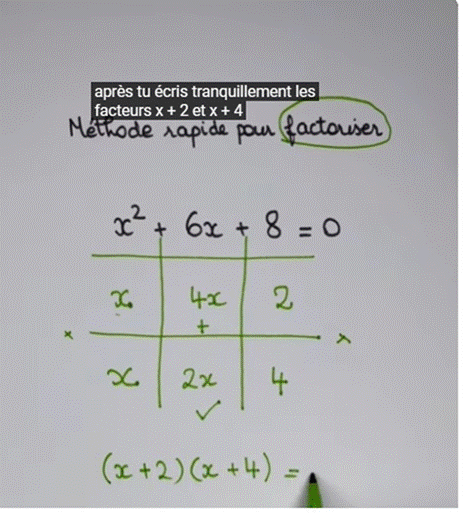 après tu écris tranquillement les
facteurs x + 2 et x + 4
Méthode rapide pour factoriser
x² + 6x + 8 = 0
x 4x 2
× + ×
x 2x 4
✓
(x+2)(x+4) =